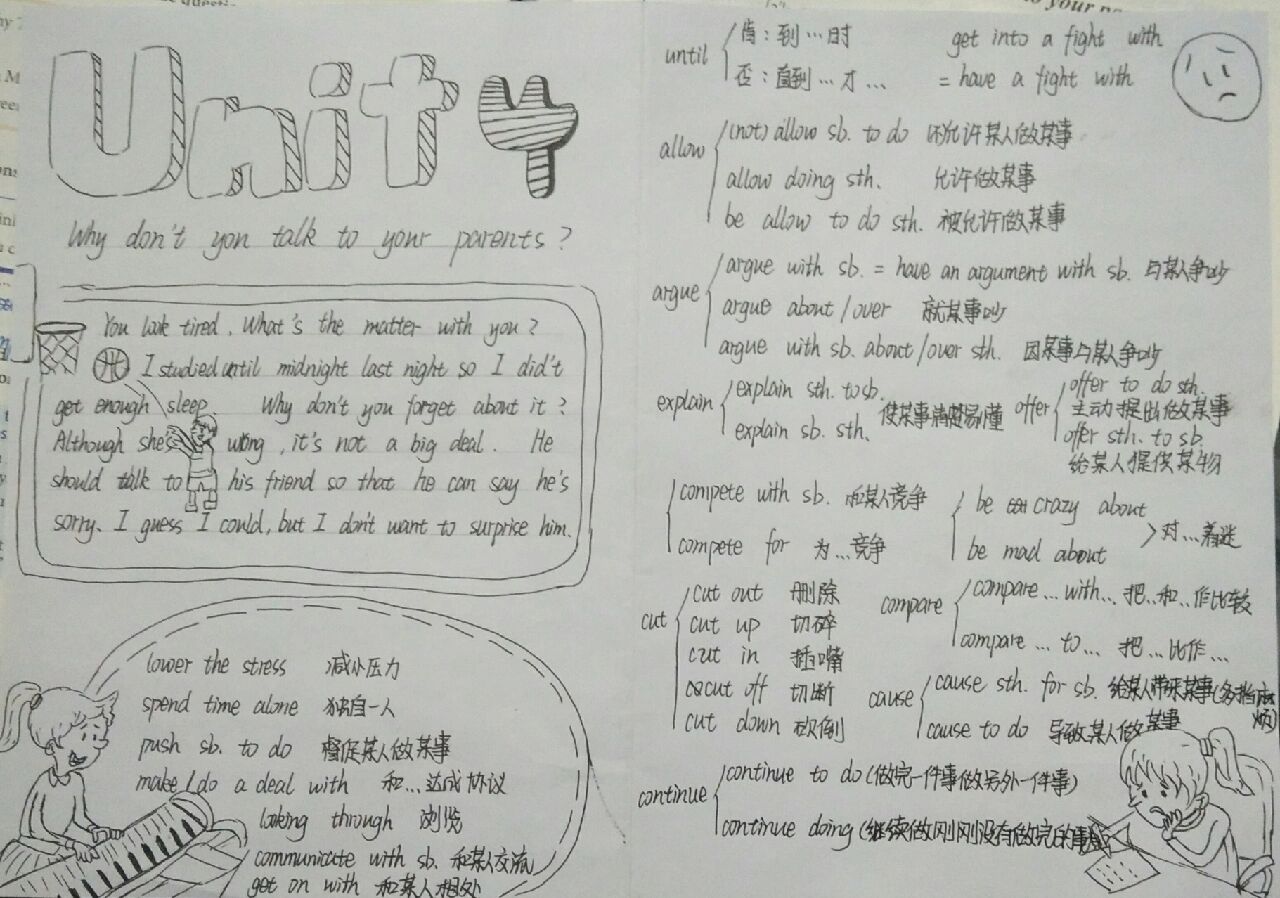 Unit 4
Why don't you talk to your parents?
You look tired. What's the matter with you?
I studied until midnight last night so I did't
get enough sleep Why don't you forget about it?
Although she's wrong, it's not a big deal. He
should talk to his friend so that he can say he's
sorry. I guess I could, but I don't want to surprise him.
lower the stress 减小压力
spend time alone 独自一人
push sb. to do 督促某人做某事
make/do a deal with 和…达成协议
looking through 浏览
communicate with sb. 和某人交流
get on with 和某人相处
until
肯:到…时
否:直到…才…
get into a fight with
= have a fight with
allow
(not) allow sb. to do 不允许某人做某事
allow doing sth. 允许做某事
be allow to do sth. 被允许做某事
argue
argue with sb. = have an argument with sb. 与某人争吵
argue about/over 就某事吵
argue with sb. about/over sth. 因某事与某人争吵
explain
explain sth. to sb.
explain sb. sth.
使某事清楚易懂
offer
offer to do sth.
主动提出做某事
offer sth. to sb.
给某人提供某物
compete with sb. 和某人竞争
compete for 为…竞争
be crazy about
be mad about
对…着迷
cut
cut out 删除
cut up 切碎
cut in 插嘴
cut off 切断
cut down 砍倒
compare
compare…with… 把…和…作比较
compare…to… 把…比作…
cause
cause sth. for sb. 给某人带来某事(多指麻烦)
cause to do 导致某人做某事
continue
continue to do (做完一件事做另外一件事)
continue doing (继续做刚刚没有做完的事